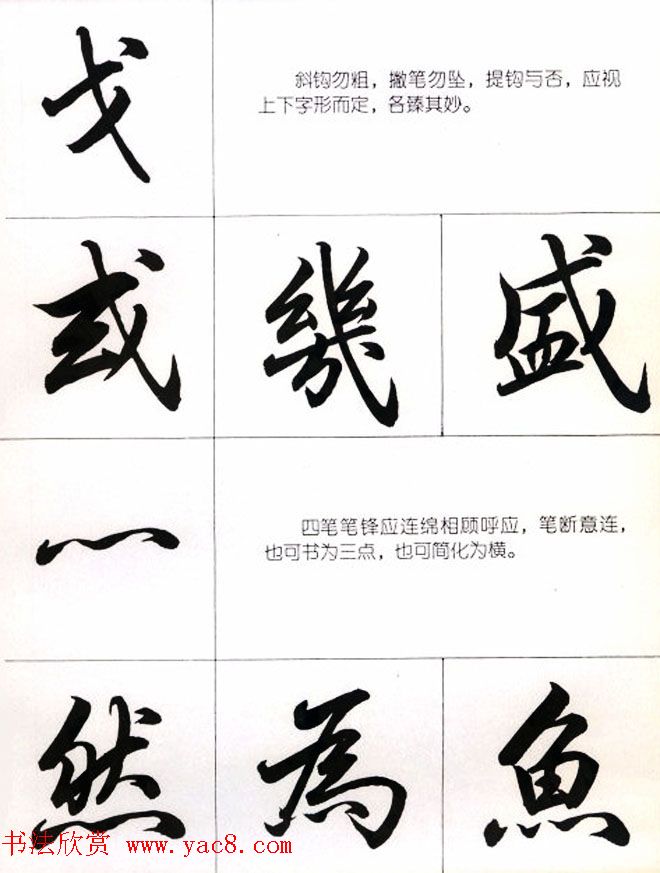 戈
斜钩勿粗，撇笔勿坠，提钩与否，应视
上下字形而定，各臻其妙。
或 幾 盛
灬
四笔笔锋应连绵相顾呼应，笔断意连，
也可书为三点，也可简化为横。
然 為 魚
书法欣赏 www.yac8.com